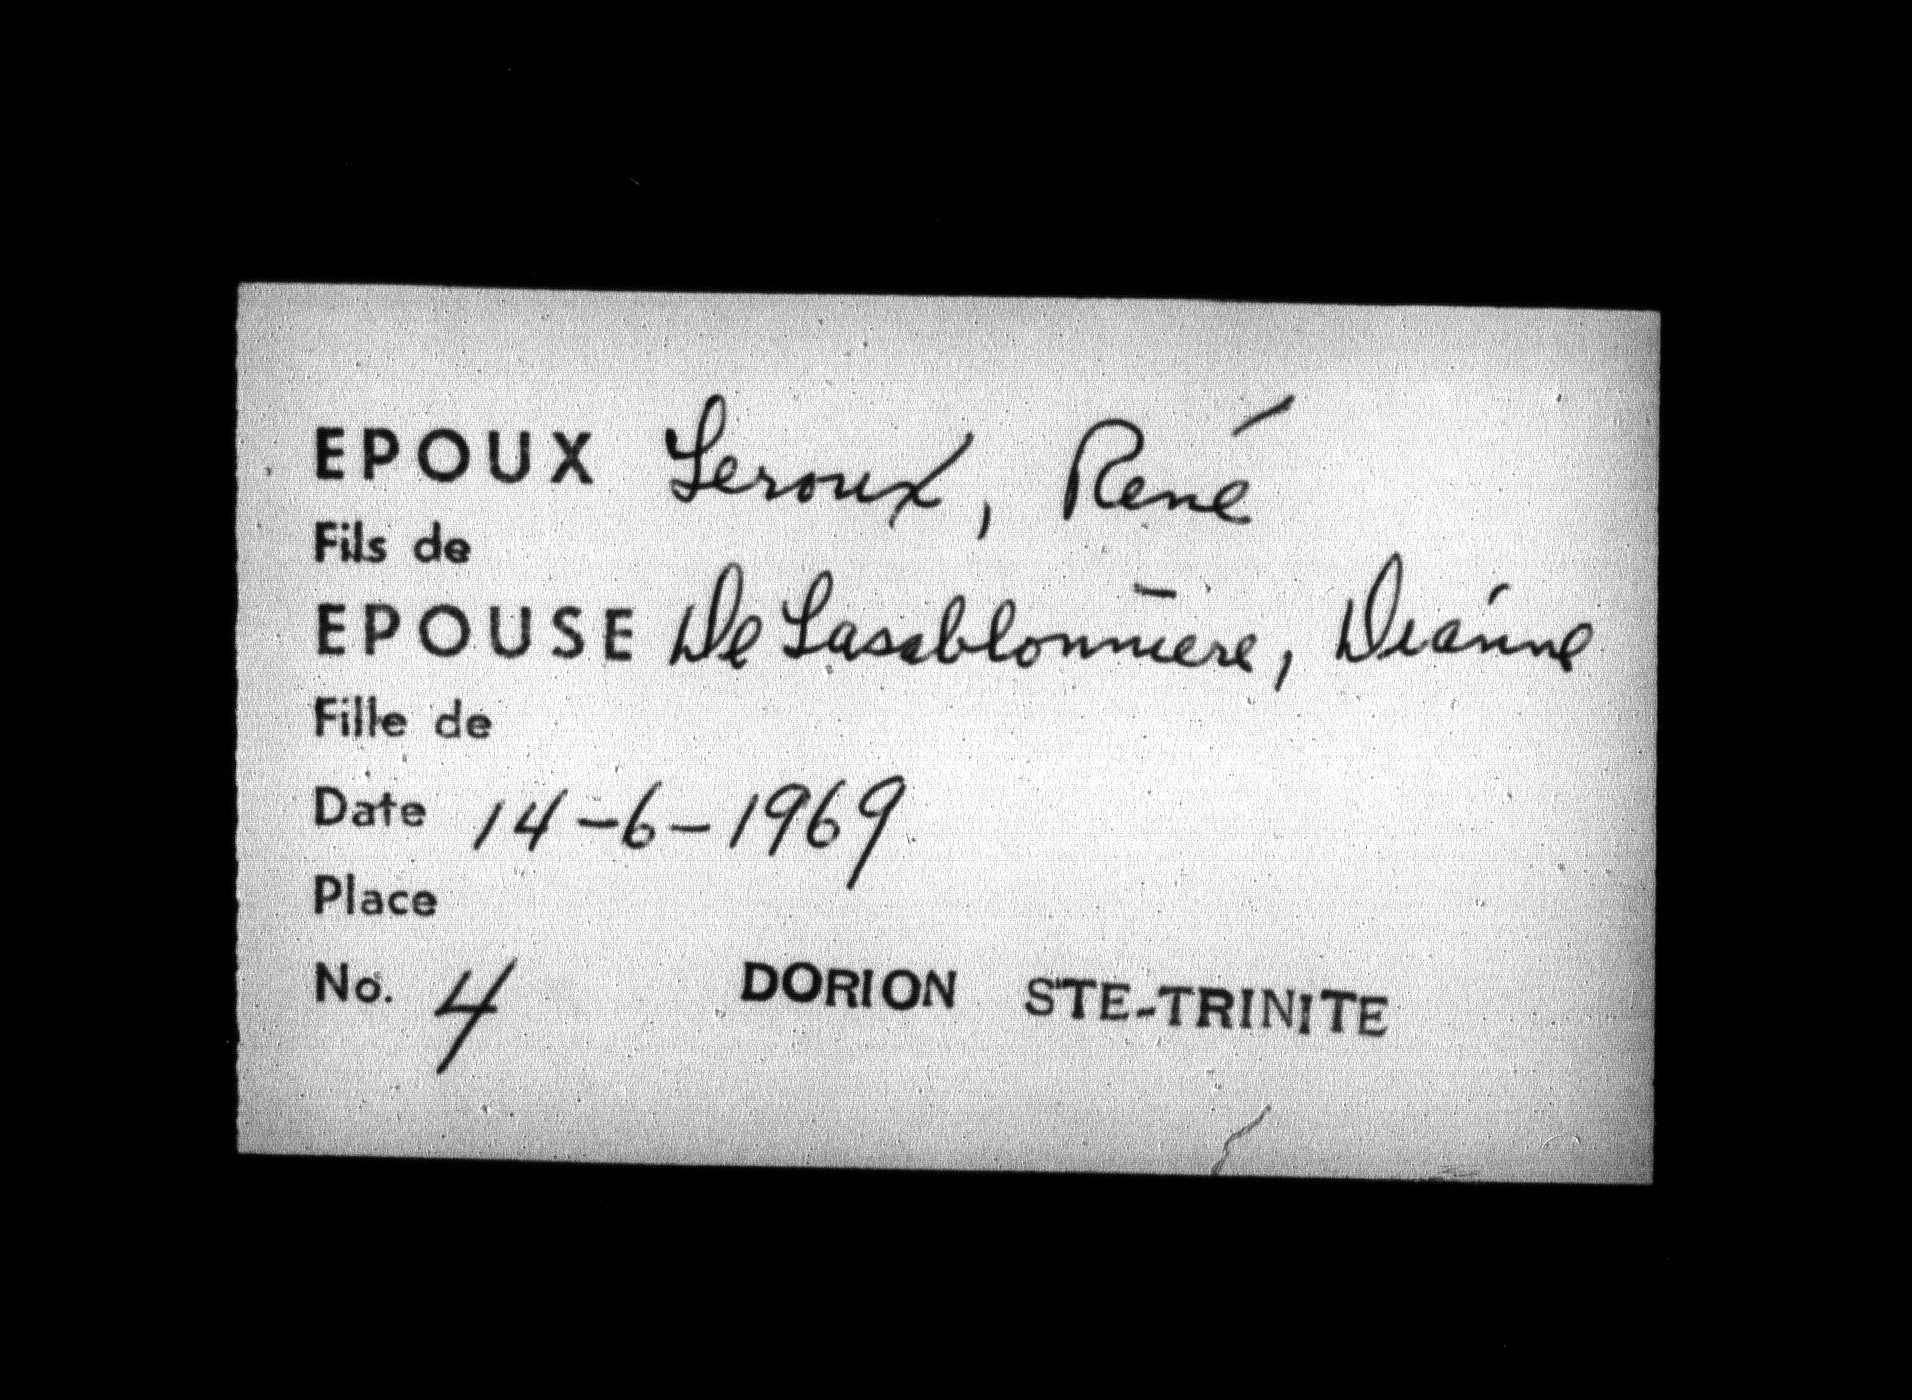 EPOUX Leroux, René
Fils de
EPOUSE De Lasablonniere, Dianne
Fille de
Date 14-6-1969
Place
No. 4 DORION STE-TRINITE